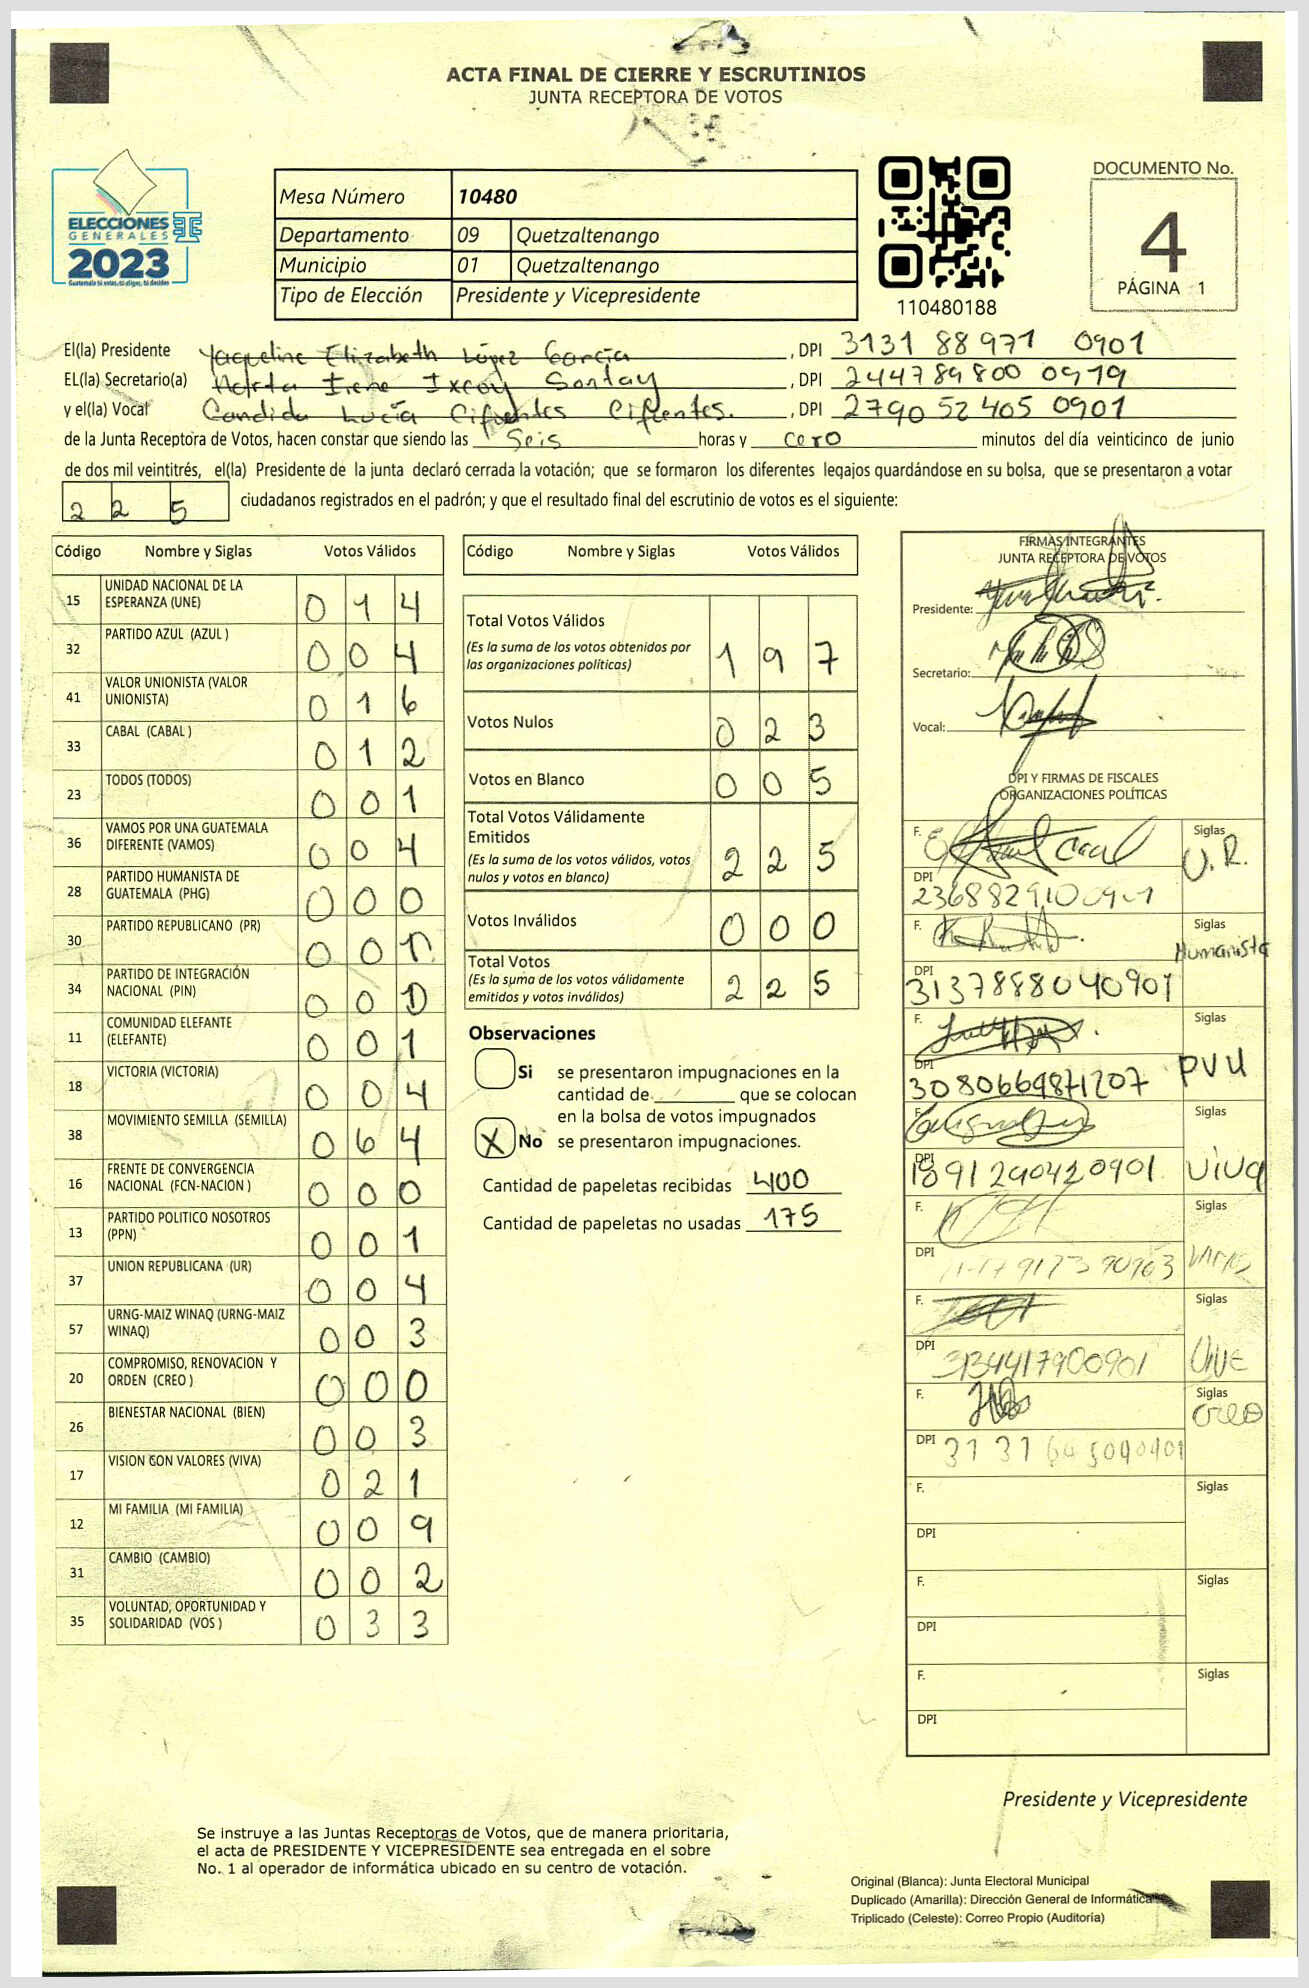 ACTA FINAL DE CIERRE Y ESCRUTINIOS
JUNTA RECEPTORA DE VOTOS
ELECCIONES
GENERALES
2023
Guatemala tú votas, tú eliges, tú decides
Mesa Número 10480
Departamento 09 Quetzaltenango
Municipio 01 Quetzaltenango
Tipo de Elección Presidente y Vicepresidente
110480188
DOCUMENTO No.
4
PÁGINA 1
El(la) Presidente Yaqueline Elizabeth López García , DPI 3131 88971 0901
EL(la) Secretario(a) Irene Ixcoy Sontay , DPI 244789800 0919
y el(la) Vocal Candida Lucía Cifuentes Cifuentes. , DPI 2790 52405 0901
de la Junta Receptora de Votos, hacen constar que siendo las Seis horas y cero minutos del día veinticinco de junio
de dos mil veintitrés, el(la) Presidente de la junta declaró cerrada la votación; que se formaron los diferentes legajos guardándose en su bolsa, que se presentaron a votar
2 2 5 ciudadanos registrados en el padrón; y que el resultado final del escrutinio de votos es el siguiente:
Código Nombre y Siglas Votos Válidos
15 UNIDAD NACIONAL DE LA
ESPERANZA (UNE) 0 1 4
32 PARTIDO AZUL (AZUL ) 0 0 4
41 VALOR UNIONISTA (VALOR
UNIONISTA) 0 1 6
33 CABAL (CABAL ) 0 1 2
23 TODOS (TODOS) 0 0 1
36 VAMOS POR UNA GUATEMALA
DIFERENTE (VAMOS) 0 0 4
28 PARTIDO HUMANISTA DE
GUATEMALA (PHG) 0 0 0
30 PARTIDO REPUBLICANO (PR) 0 0 1
34 PARTIDO DE INTEGRACIÓN
NACIONAL (PIN) 0 0 0
11 COMUNIDAD ELEFANTE
(ELEFANTE) 0 0 1
18 VICTORIA (VICTORIA) 0 0 4
38 MOVIMIENTO SEMILLA (SEMILLA) 0 6 4
16 FRENTE DE CONVERGENCIA
NACIONAL (FCN-NACION ) 0 0 0
13 PARTIDO POLITICO NOSOTROS
(PPN) 0 0 1
37 UNION REPUBLICANA (UR) 0 0 4
57 URNG-MAIZ WINAQ (URNG-MAIZ
WINAQ) 0 0 3
20 COMPROMISO, RENOVACION Y
ORDEN (CREO ) 0 0 0
26 BIENESTAR NACIONAL (BIEN) 0 0 3
17 VISION CON VALORES (VIVA) 0 2 1
12 MI FAMILIA (MI FAMILIA) 0 0 9
31 CAMBIO (CAMBIO) 0 0 2
35 VOLUNTAD, OPORTUNIDAD Y
SOLIDARIDAD (VOS ) 0 3 3
Código Nombre y Siglas Votos Válidos
Total Votos Válidos
(Es la suma de los votos obtenidos por
las organizaciones políticas) 1 9 7
Votos Nulos 0 2 3
Votos en Blanco 0 0 5
Total Votos Válidamente
Emitidos
(Es la suma de los votos válidos, votos
nulos y votos en blanco) 2 2 5
Votos Inválidos 0 0 0
Total Votos
(Es la suma de los votos válidamente
emitidos y votos inválidos) 2 2 5
Observaciones
Si se presentaron impugnaciones en la
cantidad de que se colocan
en la bolsa de votos impugnados
X No se presentaron impugnaciones.
Cantidad de papeletas recibidas 400
Cantidad de papeletas no usadas 175
FIRMAS INTEGRANTES
JUNTA RECEPTORA DE VOTOS
Presidente:
Secretario:
Vocal:
DPI Y FIRMAS DE FISCALES
ORGANIZACIONES POLÍTICAS
F. Siglas U.R.
DPI
F. Siglas Humanista
DPI 3137888040901
F. Siglas PVU
DPI 3080669871207
F. Siglas Viva
DPI 1891290420901
F. Siglas
DPI
F. Siglas UNE
DPI 3134417900901
F. Siglas Creo
DPI
F. Siglas
DPI
F. Siglas
DPI
F. Siglas
DPI
Presidente y Vicepresidente
Se instruye a las Juntas Receptoras de Votos, que de manera prioritaria,
el acta de PRESIDENTE Y VICEPRESIDENTE sea entregada en el sobre
No. 1 al operador de informática ubicado en su centro de votación.
Original (Blanca): Junta Electoral Municipal
Duplicado (Amarilla): Dirección General de Informática
Triplicado (Celeste): Correo Propio (Auditoría)